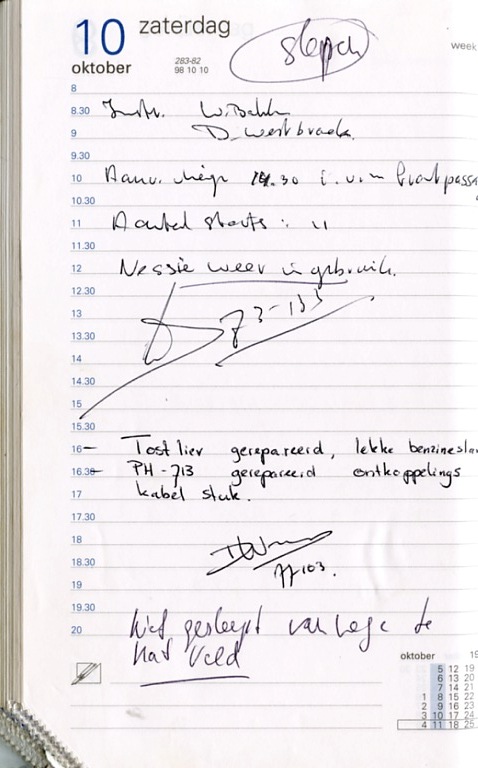 10 zaterdag
oktober
283-82
98 10 10
week
slepen
8
8.30 Instr. W. Bakk
9 D. Westbroek
9.30
10 Aanv. 14.30 i.v.m frontpassa
10.30
11 Aantal starts : 11
11.30
12 Nessie weer in gebruik.
12.30
13 73-133
13.30
14
14.30
15
15.30
16 – Tost lier gerepareerd, lekke benzinesla
16.30 – PH-713 gerepareerd ontkoppelings
17 kabel stuk.
17.30
18
18.30 77103.
19
19.30
20 Niet gesleept vanwege te
nat veld
oktober 19
5 12 19
6 13 20
7 14 21
1 8 15 22
2 9 16 23
3 10 17 24
4 11 18 25